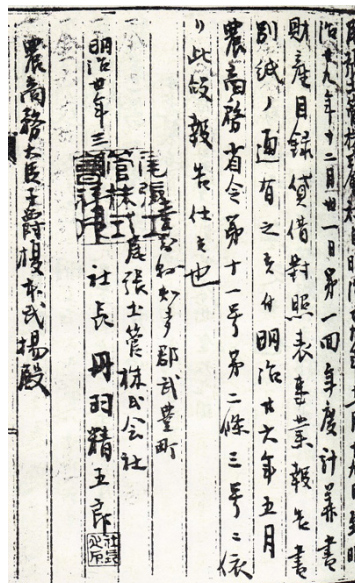 治廿九年十二月卅一日第一回年度計算書
財産目録貸借對照表事業報告書
別紙ノ通有之候付明治廿六年五月
農商務省令第十一号第二條三号ニ依
リ此段報告仕候也
知多郡武豊町
尾張土管株式会社
明治卅年三 社長 丹羽精五郎
農商務大臣子爵榎本武揚殿